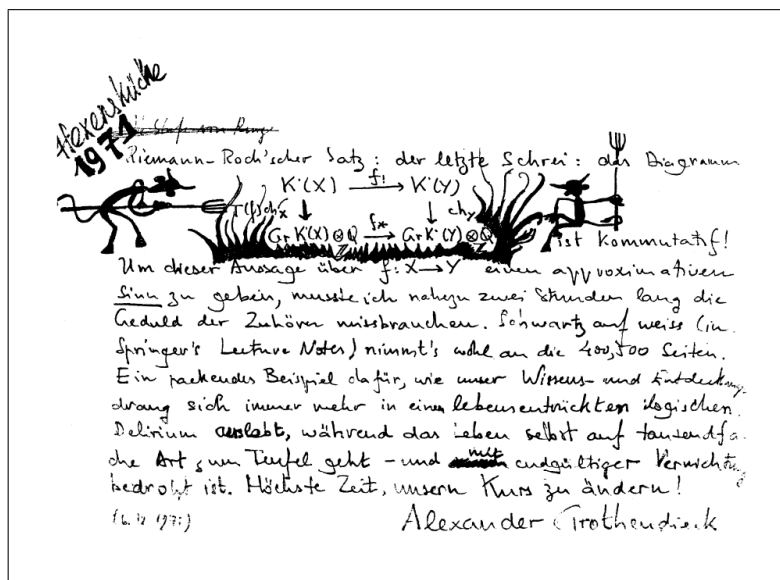 Hexenküche
1971
Riemann-Roch'scher Satz: der letzte Schrei: das Diagramm
K˙(X) f! K˙(Y)
T(f)chx chy
Gr K˙(X)⊗Q f* Gr K˙(Y)⊗Q
Z Z
ist kommutatif!
Um dieser Aussage über f: X→Y einen approximativen
Sinn zu geben, musste ich nahezu zwei Stunden lang die
Geduld der Zuhörer missbrauchen. Schwartz auf weiss (in
Springer's Lecture Notes) nimmt's wohl an die 400, 500 Seiten.
Ein packendes Beispiel dafür, wie unser Wissens- und Entdeckungs-
drang sich immer mehr in einem lebensentrückten logischen
Delirium auslebt, während das Leben selbst auf tausendfa-
che Art zum Teufel geht - und mit endgültiger Vernichtung
bedroht ist. Höchste Zeit, unsern Kurs zu ändern!
Alexander Grothendieck